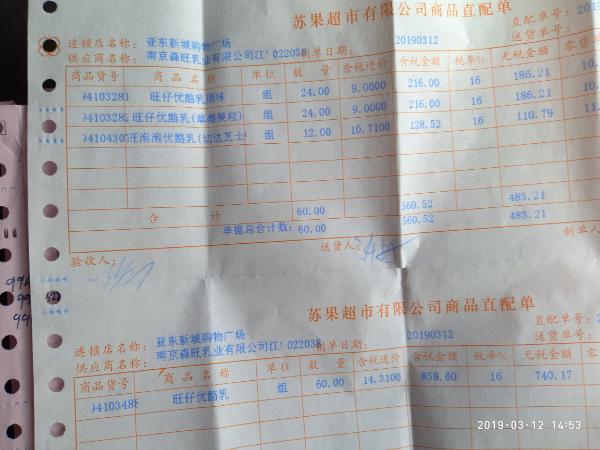 苏果超市有限公司商品直配单
直配单号: 20
连锁店名称: 亚东新城购物广场
送货单号:
供应商名称: 南京森旺乳业有限公司江' 022038 制单日期: 20190312
商品货号 商品名称 单位 数量 含税进价 含税金额 税率% 无税金额 零售
94103281 旺仔优酪乳原味 组 24.00 9.0000 216.00 16 186.21 10.
9410328 旺仔优酪乳(草莓果粒) 组 24.00 9.0000 216.00 16 186.21 10.
9410430 旺泡泡优酪乳(切达芝士 组 12.00 10.7100 128.52 16 110.79 11.
合计 60.00 560.52 483.21
单据总合计数: 60.00 560.52 483.21
验收人: 送货人: 制单人
苏果超市有限公司商品直配单
直配单号:
连锁店名称: 亚东新城购物广场
送货单号:
供应商名称: 南京森旺乳业有限公司江' 022038 制单日期: 20190312
商品货号 商品名称 单位 数量 含税进价 含税金额 税率% 无税金额 零
9410348 旺仔优酪乳 组 60.00 14.3100 858.60 16 740.17
2019-03-12 14:53